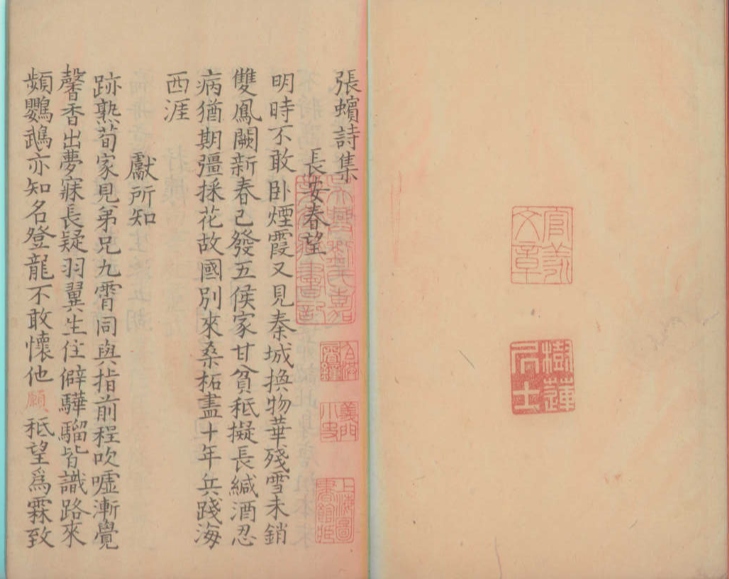 張蠙詩集
長安春望
明時不敢卧煙霞又見秦城換物華殘雪未銷
雙鳳闕新春已發五侯家甘貧秪擬長緘酒忍
病猶期彊採花故國別來桑柘盡十年兵踐海
西涯
獻所知
跡熟荀家見弟兄九霄同與指前程吹噓漸覺
馨香出夢寐長疑羽翼生住僻驊騮皆識路來
頻鸚鵡亦知名登龍不敢懷他願秪望爲霖致
樹蓮
居士